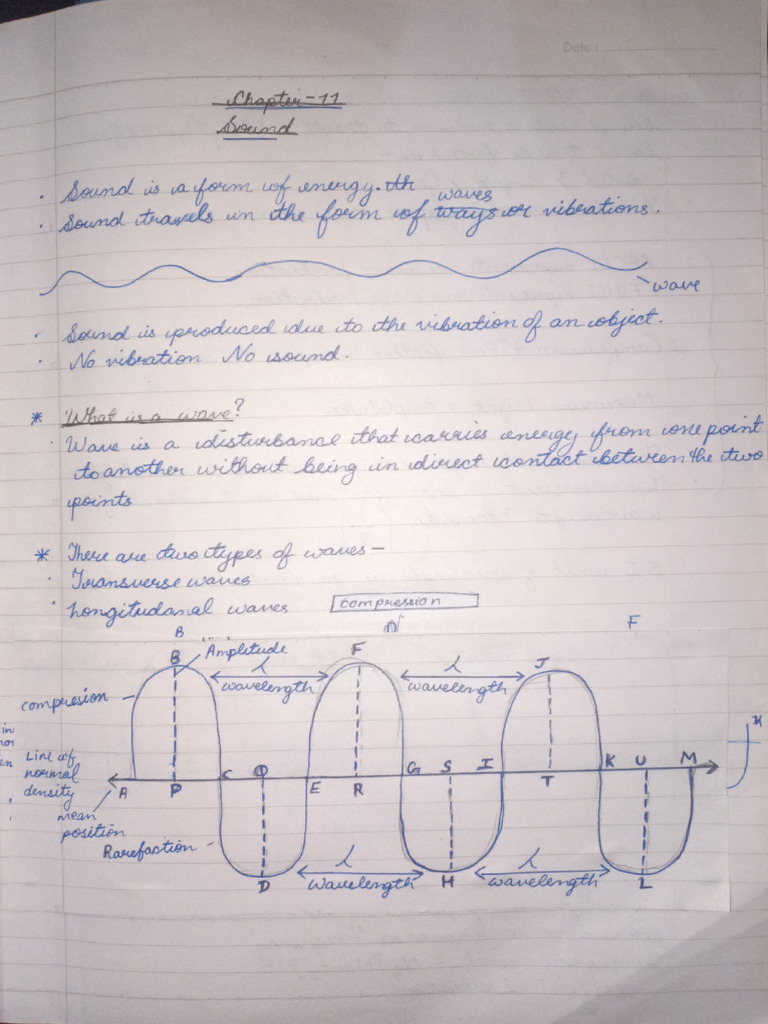 Date :
Chapter-11
Sound
· Sound is a form of energy. th
waves
· Sound travels in the form of ways or vibrations.
wave
· Sound is produced due to the vibration of an object.
· No vibration No sound.
* What is a wave?
· Wave is a disturbance that carries energy from one point
to another without being in direct contact between the two
points
* There are two types of waves –
· Transverse waves
· Longitudanal waves
compression
B F
B Amplitude λ F λ J
wavelength wavelength
compression
Line of
normal
density
A P C Q E R G S I T K U M
mean
position
Rarefaction
D λ H λ L
wavelength wavelength